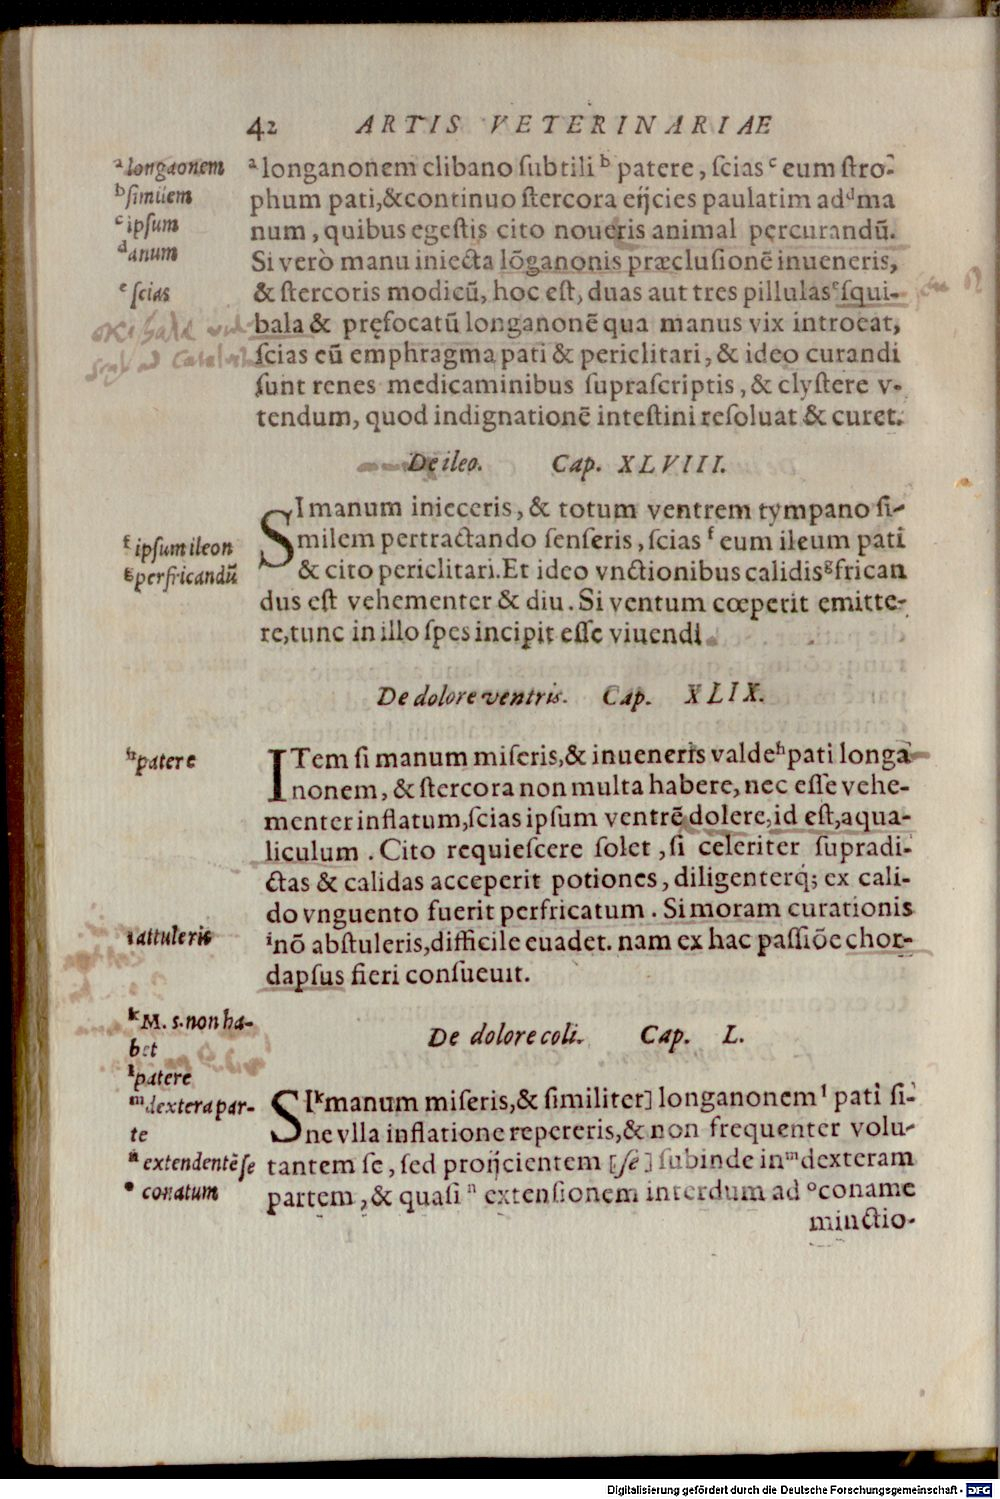 42 ARTIS VETERINARIAE
ᵃlongaonem
ᵇsimilem
ᶜipsum
ᵈanum
ᵉscias
ᵃlonganonem clibano ſubtili ᵇ patere, ſcias ᶜ eum ſtro-
phum pati,&continuo ſtercora eijcies paulatim adᵈma
num, quibus egeſtis cito noueris animal percurandū.
Si verò manu iniecta lōganonis præcluſionē inueneris,
& ſtercoris modicū, hoc eſt, duas aut tres pillulasᵉſqui-
bala & pręfocatū longanonē qua manus vix introeat,
ſcias eū emphragma pati & periclitari, & ideo curandi
ſunt renes medicaminibus ſupraſcriptis, & clyſtere v-
tendum, quod indignationē inteſtini reſoluat & curet.
De ileo. Cap. XLVIII.
ᶠipſum ileon
ᵍperfricandū
SI manum inieceris, & totum ventrem tympano ſi-
milem pertractando ſenſeris, ſcias ᶠ eum ileum pati
& cito periclitari. Et ideo vnctionibus calidisᵍfrican
dus eſt vehementer & diu. Si ventum cœperit emitte-
re,tunc in illo ſpes incipit eſſe viuendi.
De dolore ventris. Cap. XLIX.
ʰpatere
ITem ſi manum miſeris,& inueneris valdeʰpati longa
nonem, & ſtercora non multa habere, nec eſſe vehe-
menter inflatum,ſcias ipſum ventrē dolere,id eſt,aqua-
liculum. Cito requieſcere ſolet, ſi celeriter ſupradi-
ctas & calidas acceperit potiones, diligenterq́; ex cali-
do vnguento fuerit perfricatum. Si moram curationis
ⁱattuleris
ⁱnō abſtuleris,difficile euadet. nam ex hac paſſiōe chor-
dapſus fieri conſueuit.
De dolore coli. Cap. L.
ᵏM. s. non ha-
bet
ˡpatere
ᵐdextera par-
te
ⁿextendentē ſe
ᵒconatum
SIᵏmanum miſeris,& ſimiliter] longanonemˡ pati ſi-
ne vlla inflatione repereris,& non frequenter volu-
tantem ſe, ſed proijcientem [ſe] ſubinde inᵐdexteram
partem, & quaſi ⁿ extenſionem interdum ad ᵒconame
minctio-
Digitalisierung gefördert durch die Deutsche Forschungsgemeinschaft - DFG